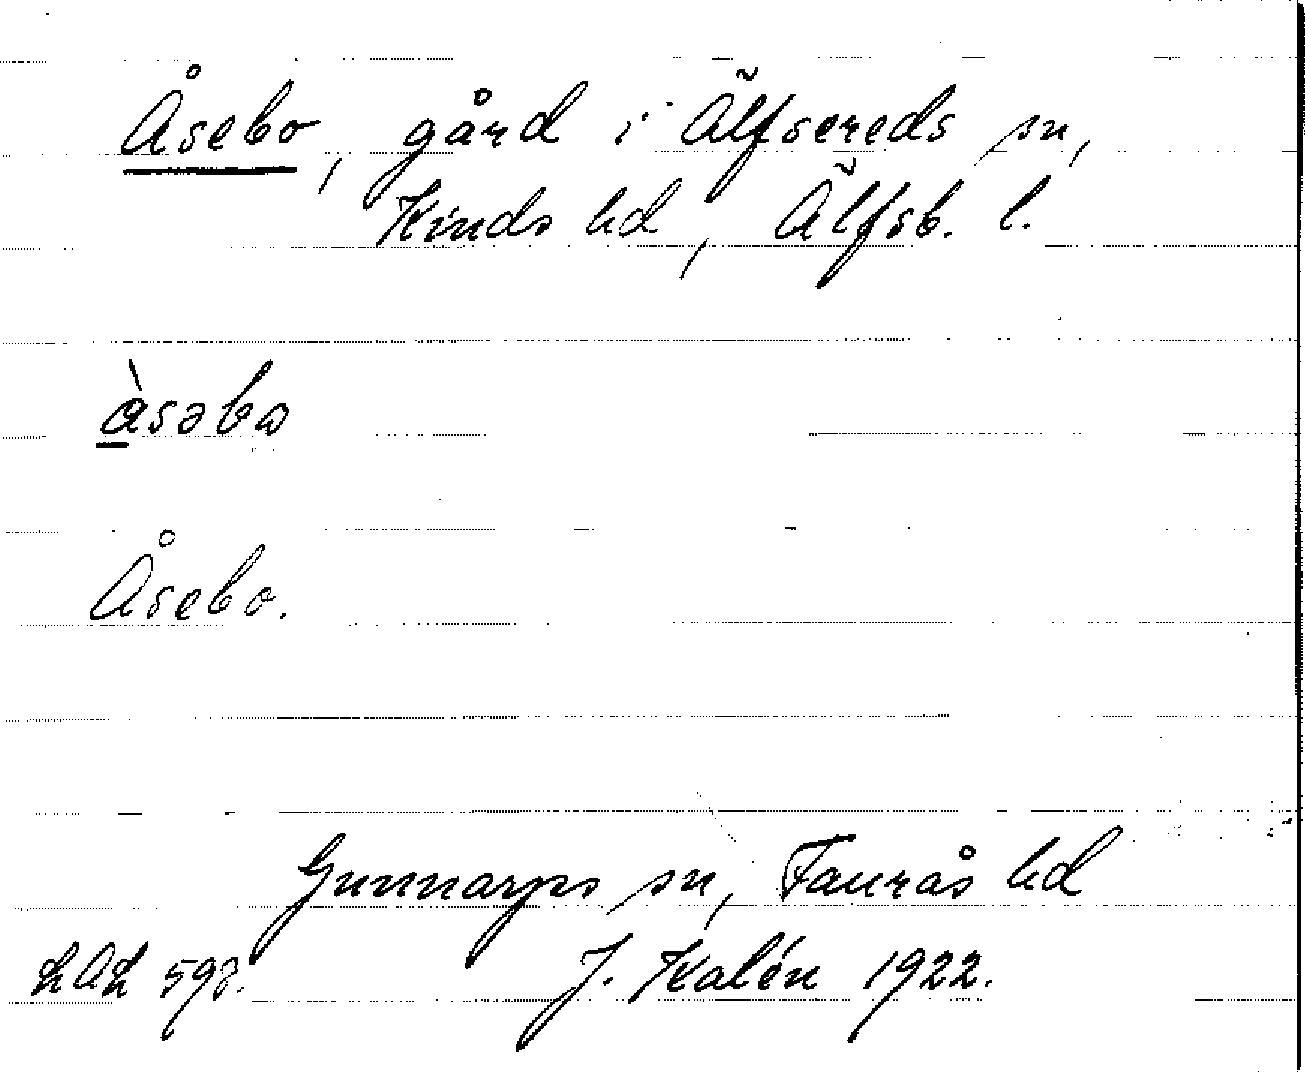 Åsebo, gård i Älfsereds sn,
Kinds hd, Älfsb. l.
åsəbω
Åsebo.
Gunnarps sn, Faurås hd
J. Kalén 1922.